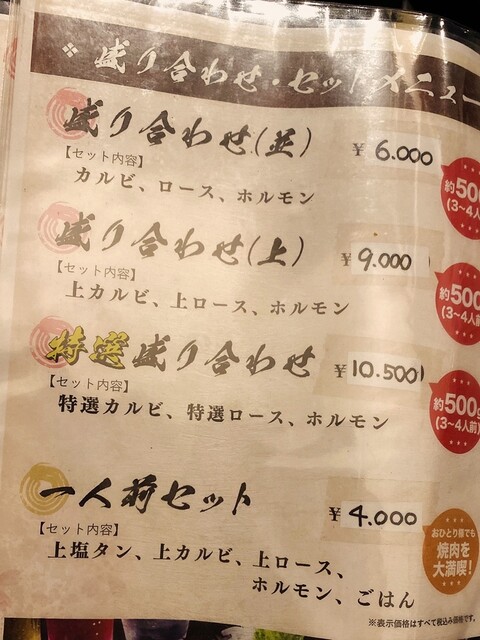 盛り合わせ・セットメニュー
盛り合わせ(並) ¥6.000
【セット内容】
カルビ、ロース、ホルモン
約500
(3~4人
盛り合わせ(上) ¥9.000
【セット内容】
上カルビ、上ロース、ホルモン
約500
(3~4人前
特選盛り合わせ ¥10.500
【セット内容】
特選カルビ、特選ロース、ホルモン
約500g
(3~4人前)
一人前セット ¥4.000
【セット内容】
上塩タン、上カルビ、上ロース、
ホルモン、ごはん
おひとり様でも
焼肉を
大満喫!
※表示価格はすべて税込み価格です。